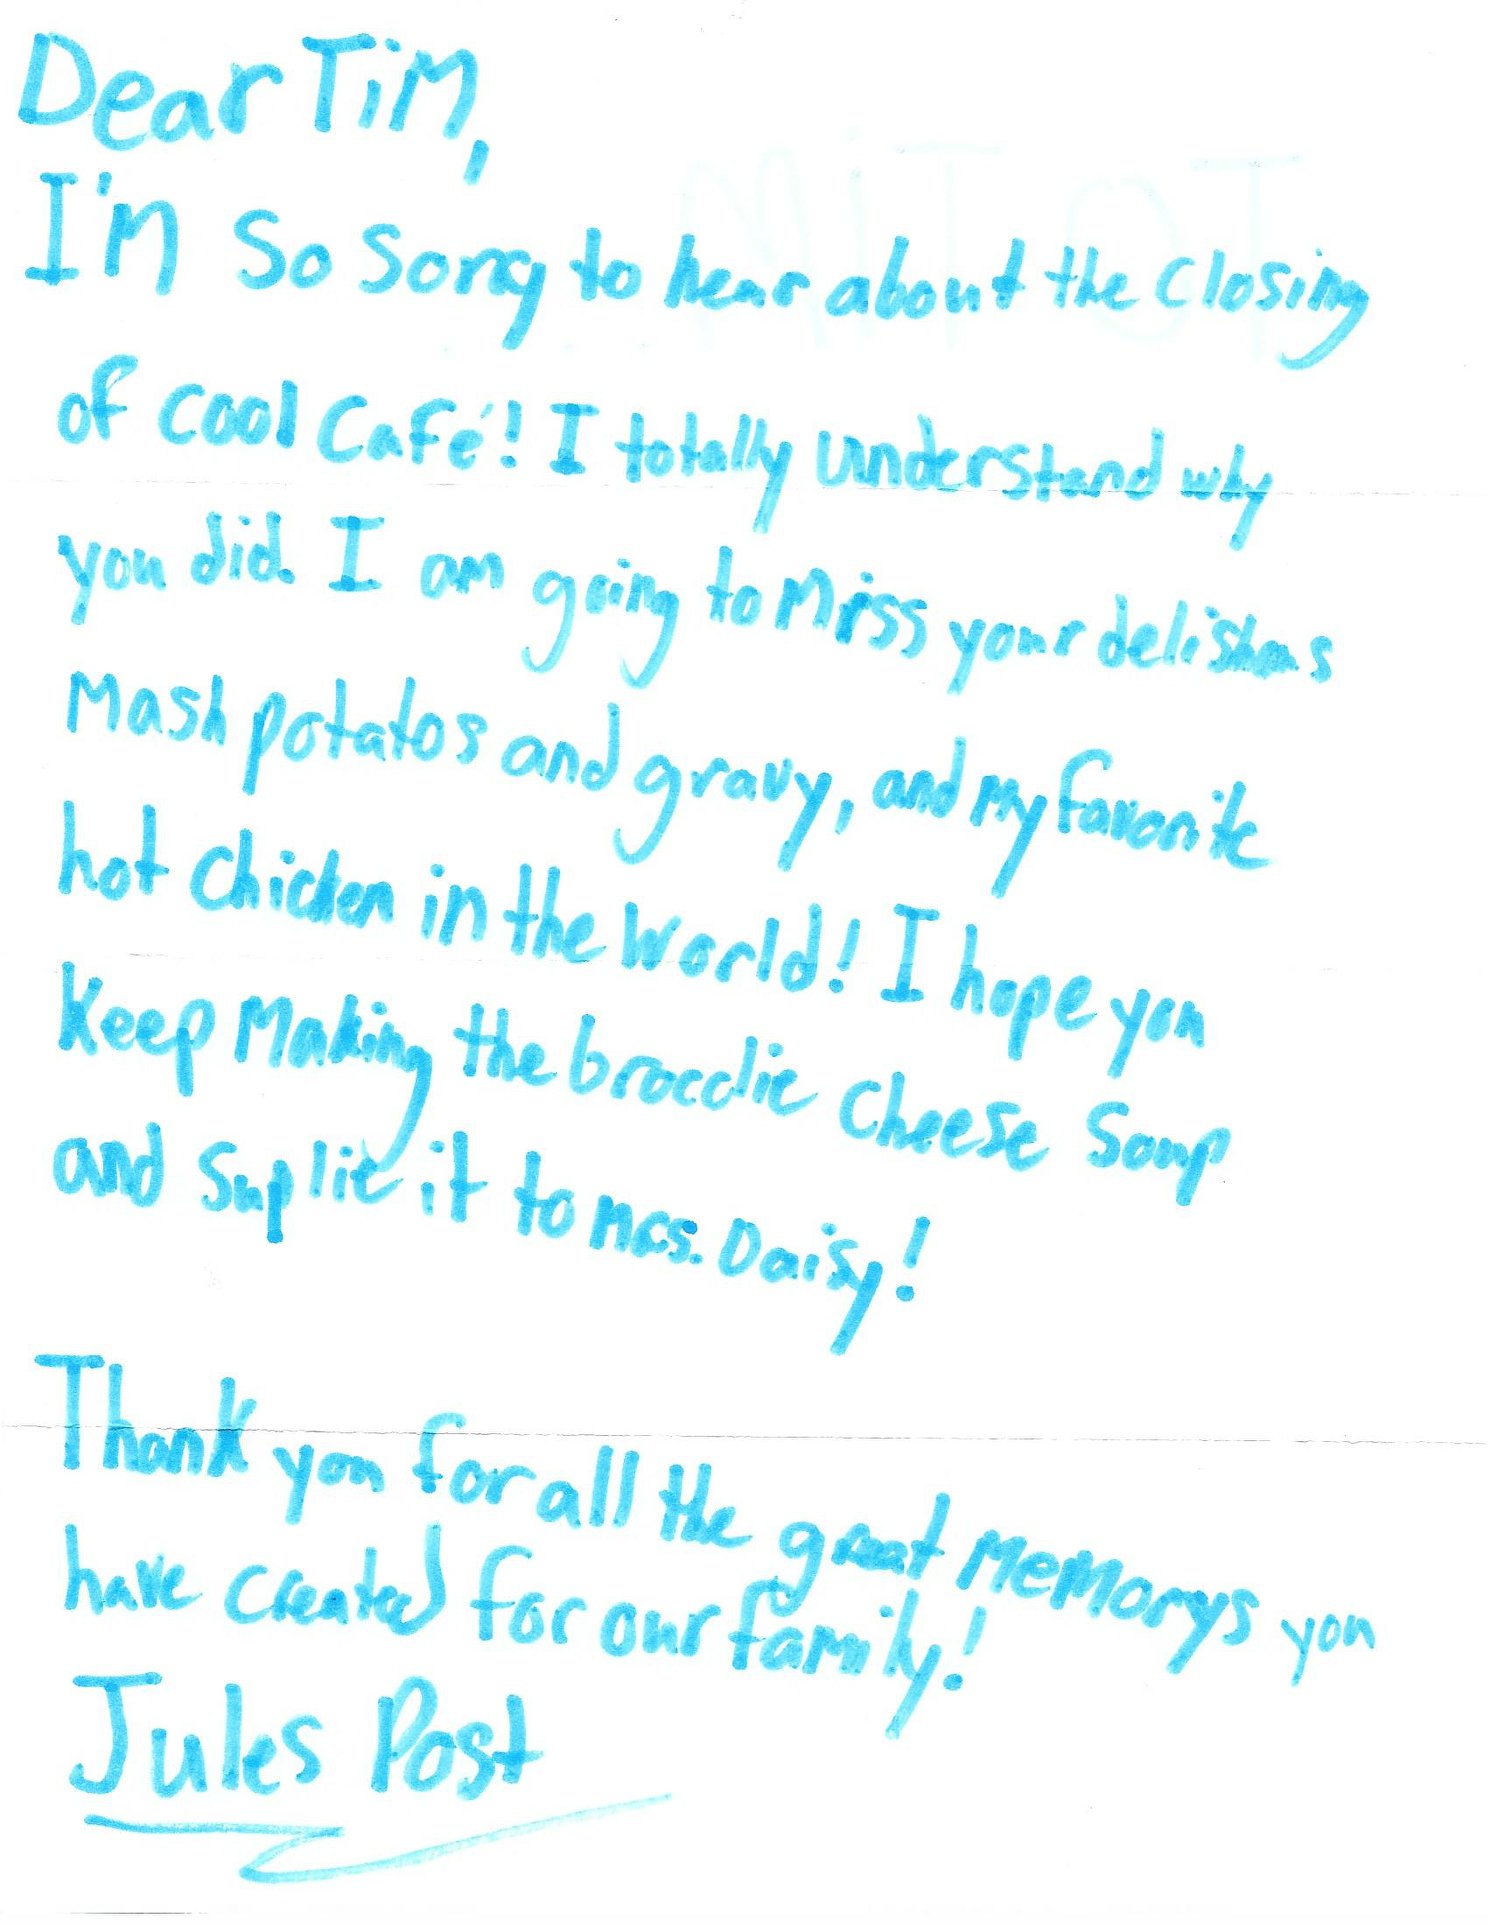 Dear Tim,
I'm so sorry to hear about the closing
of Cool Café! I totally understand why
you did. I am going to miss your delishous
mash potatos and gravy, and my favorite
hot chicken in the world! I hope you
keep making the broccolie cheese soup
and suplie it to Mrs. Daisy!
Thank you for all the great memorys you
have created for our family!
Jules Post
TO TiM